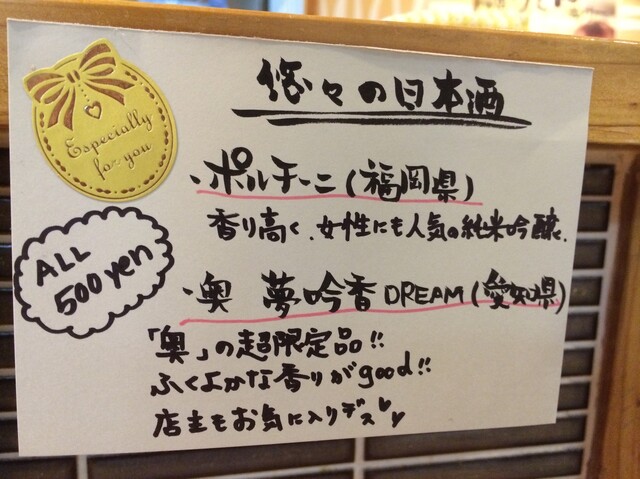 悠々の日本酒
Especially
for you
・ポルチーニ(福岡県)
香り高く、女性にも人気の純米吟醸、
ALL
500yen
・奥 夢吟香 DREAM(愛知県)
「奥」の超限定品!!
ふくよかな香りがgood!!
店主もお気に入りデス♥♥